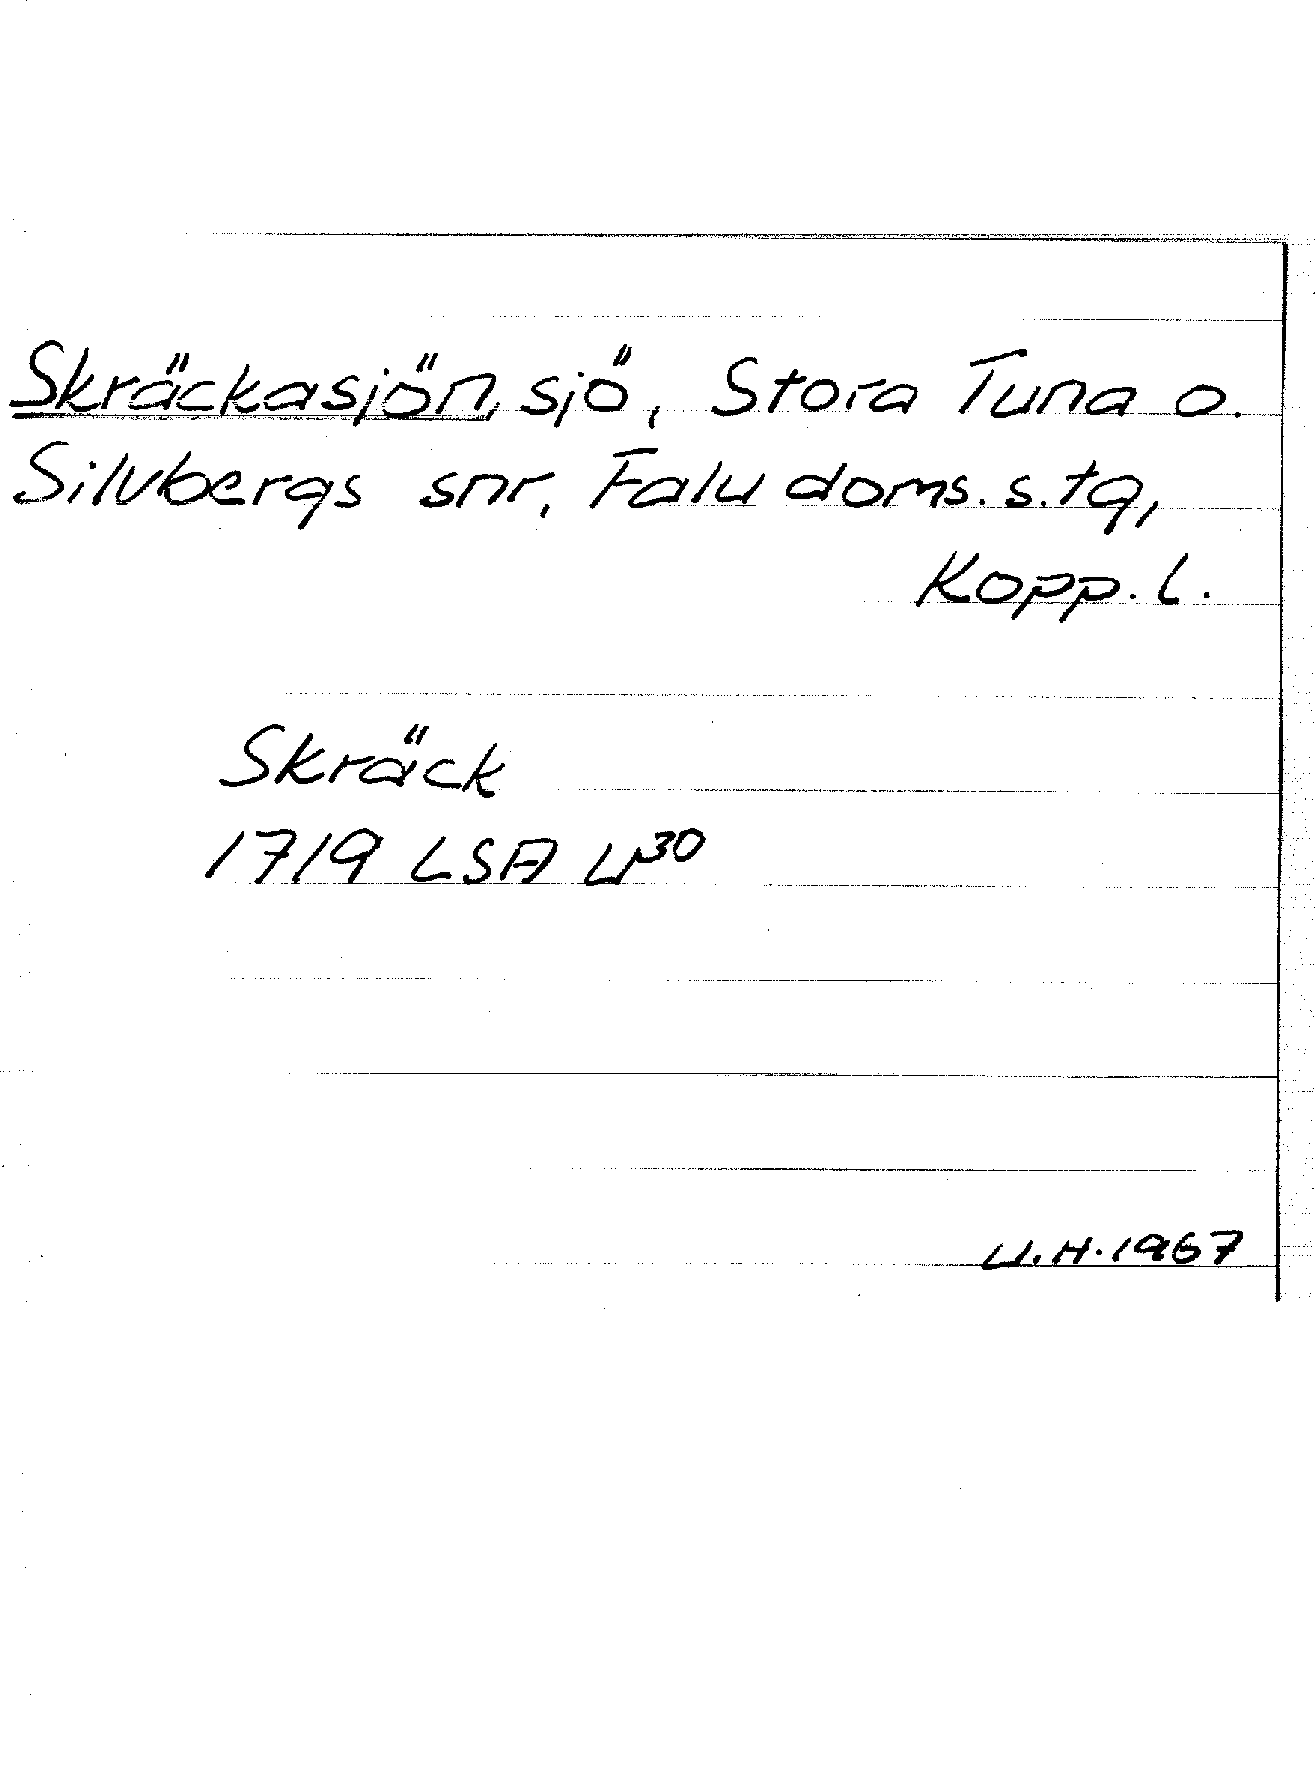 Skräckasjön, sjö, Stora Tuna o.
Silvbergs snr, Falu doms.s.tg,
Kopp.l.
Skräck
1719 LSA U³⁰
U.H.1967